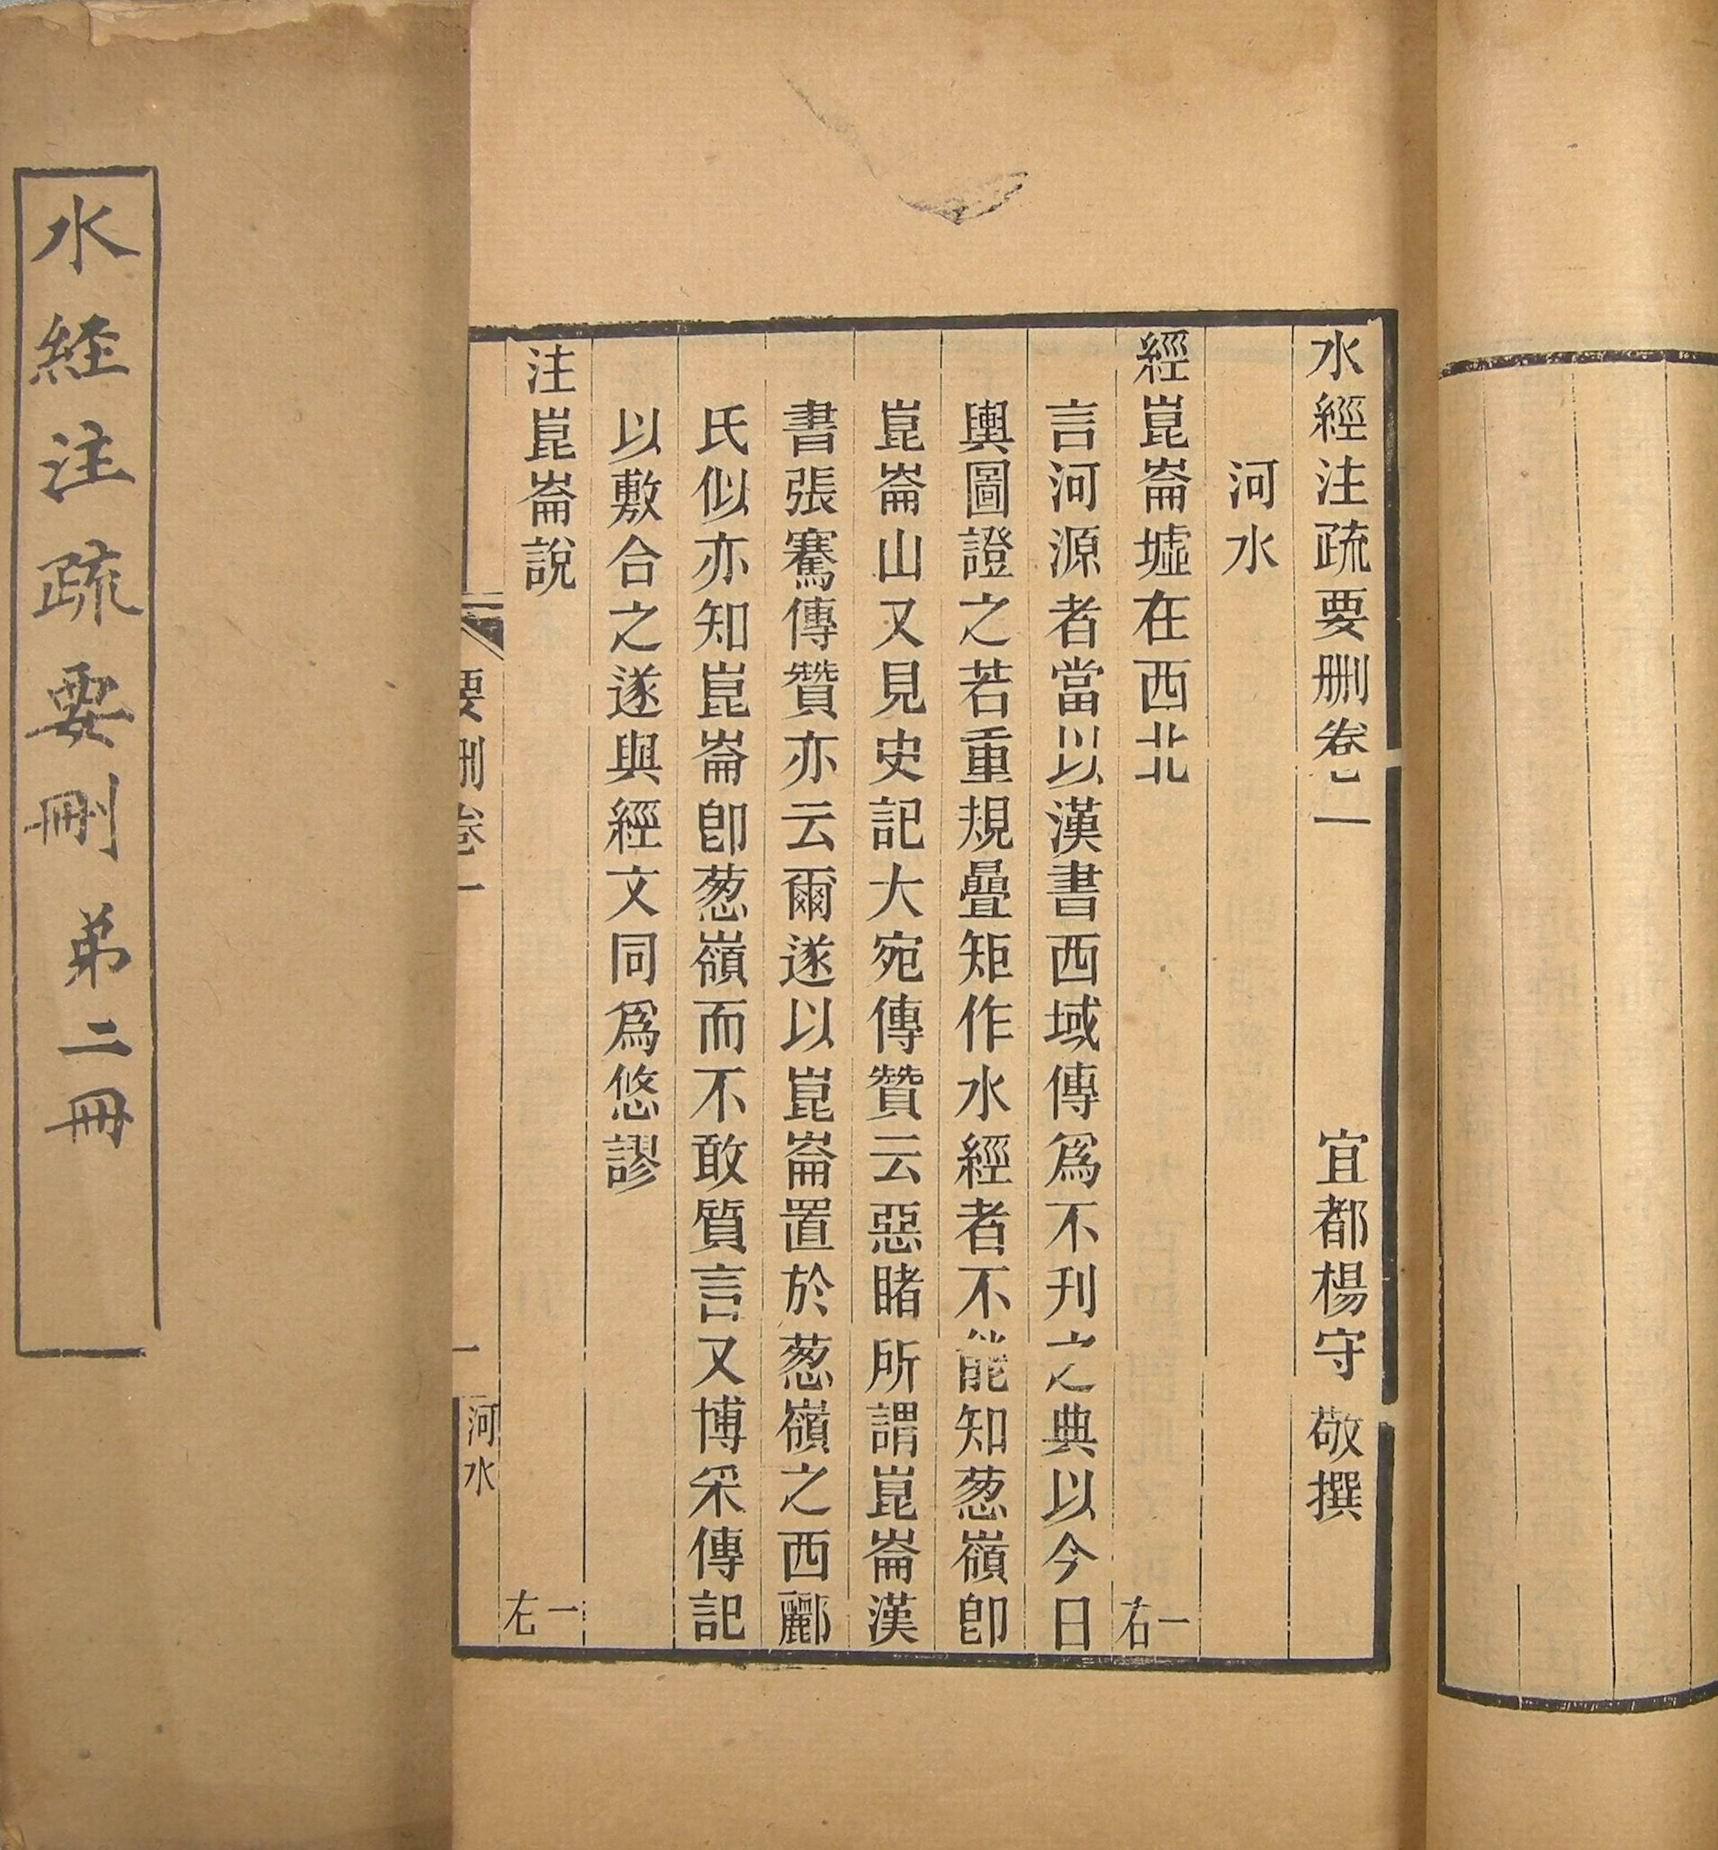 水經注疏要刪卷一 宜都楊守敬撰
河水
經崑崙墟在西北 一右
言河源者當以漢書西域傳爲不刋之典以今日
輿圖證之若重規疊矩作水經者不能知葱嶺卽
崑崙山又見史記大宛傳贊云惡睹所謂崑崙漢
書張騫傳贊亦云爾遂以崑崙置於葱嶺之西酈
氏似亦知崑崙卽葱嶺而不敢質言又博采傳記
以敷合之遂與經文同爲悠謬
注崑崙說 一左
要刪卷一 一 河水
水経注疏要刪 弟二冊